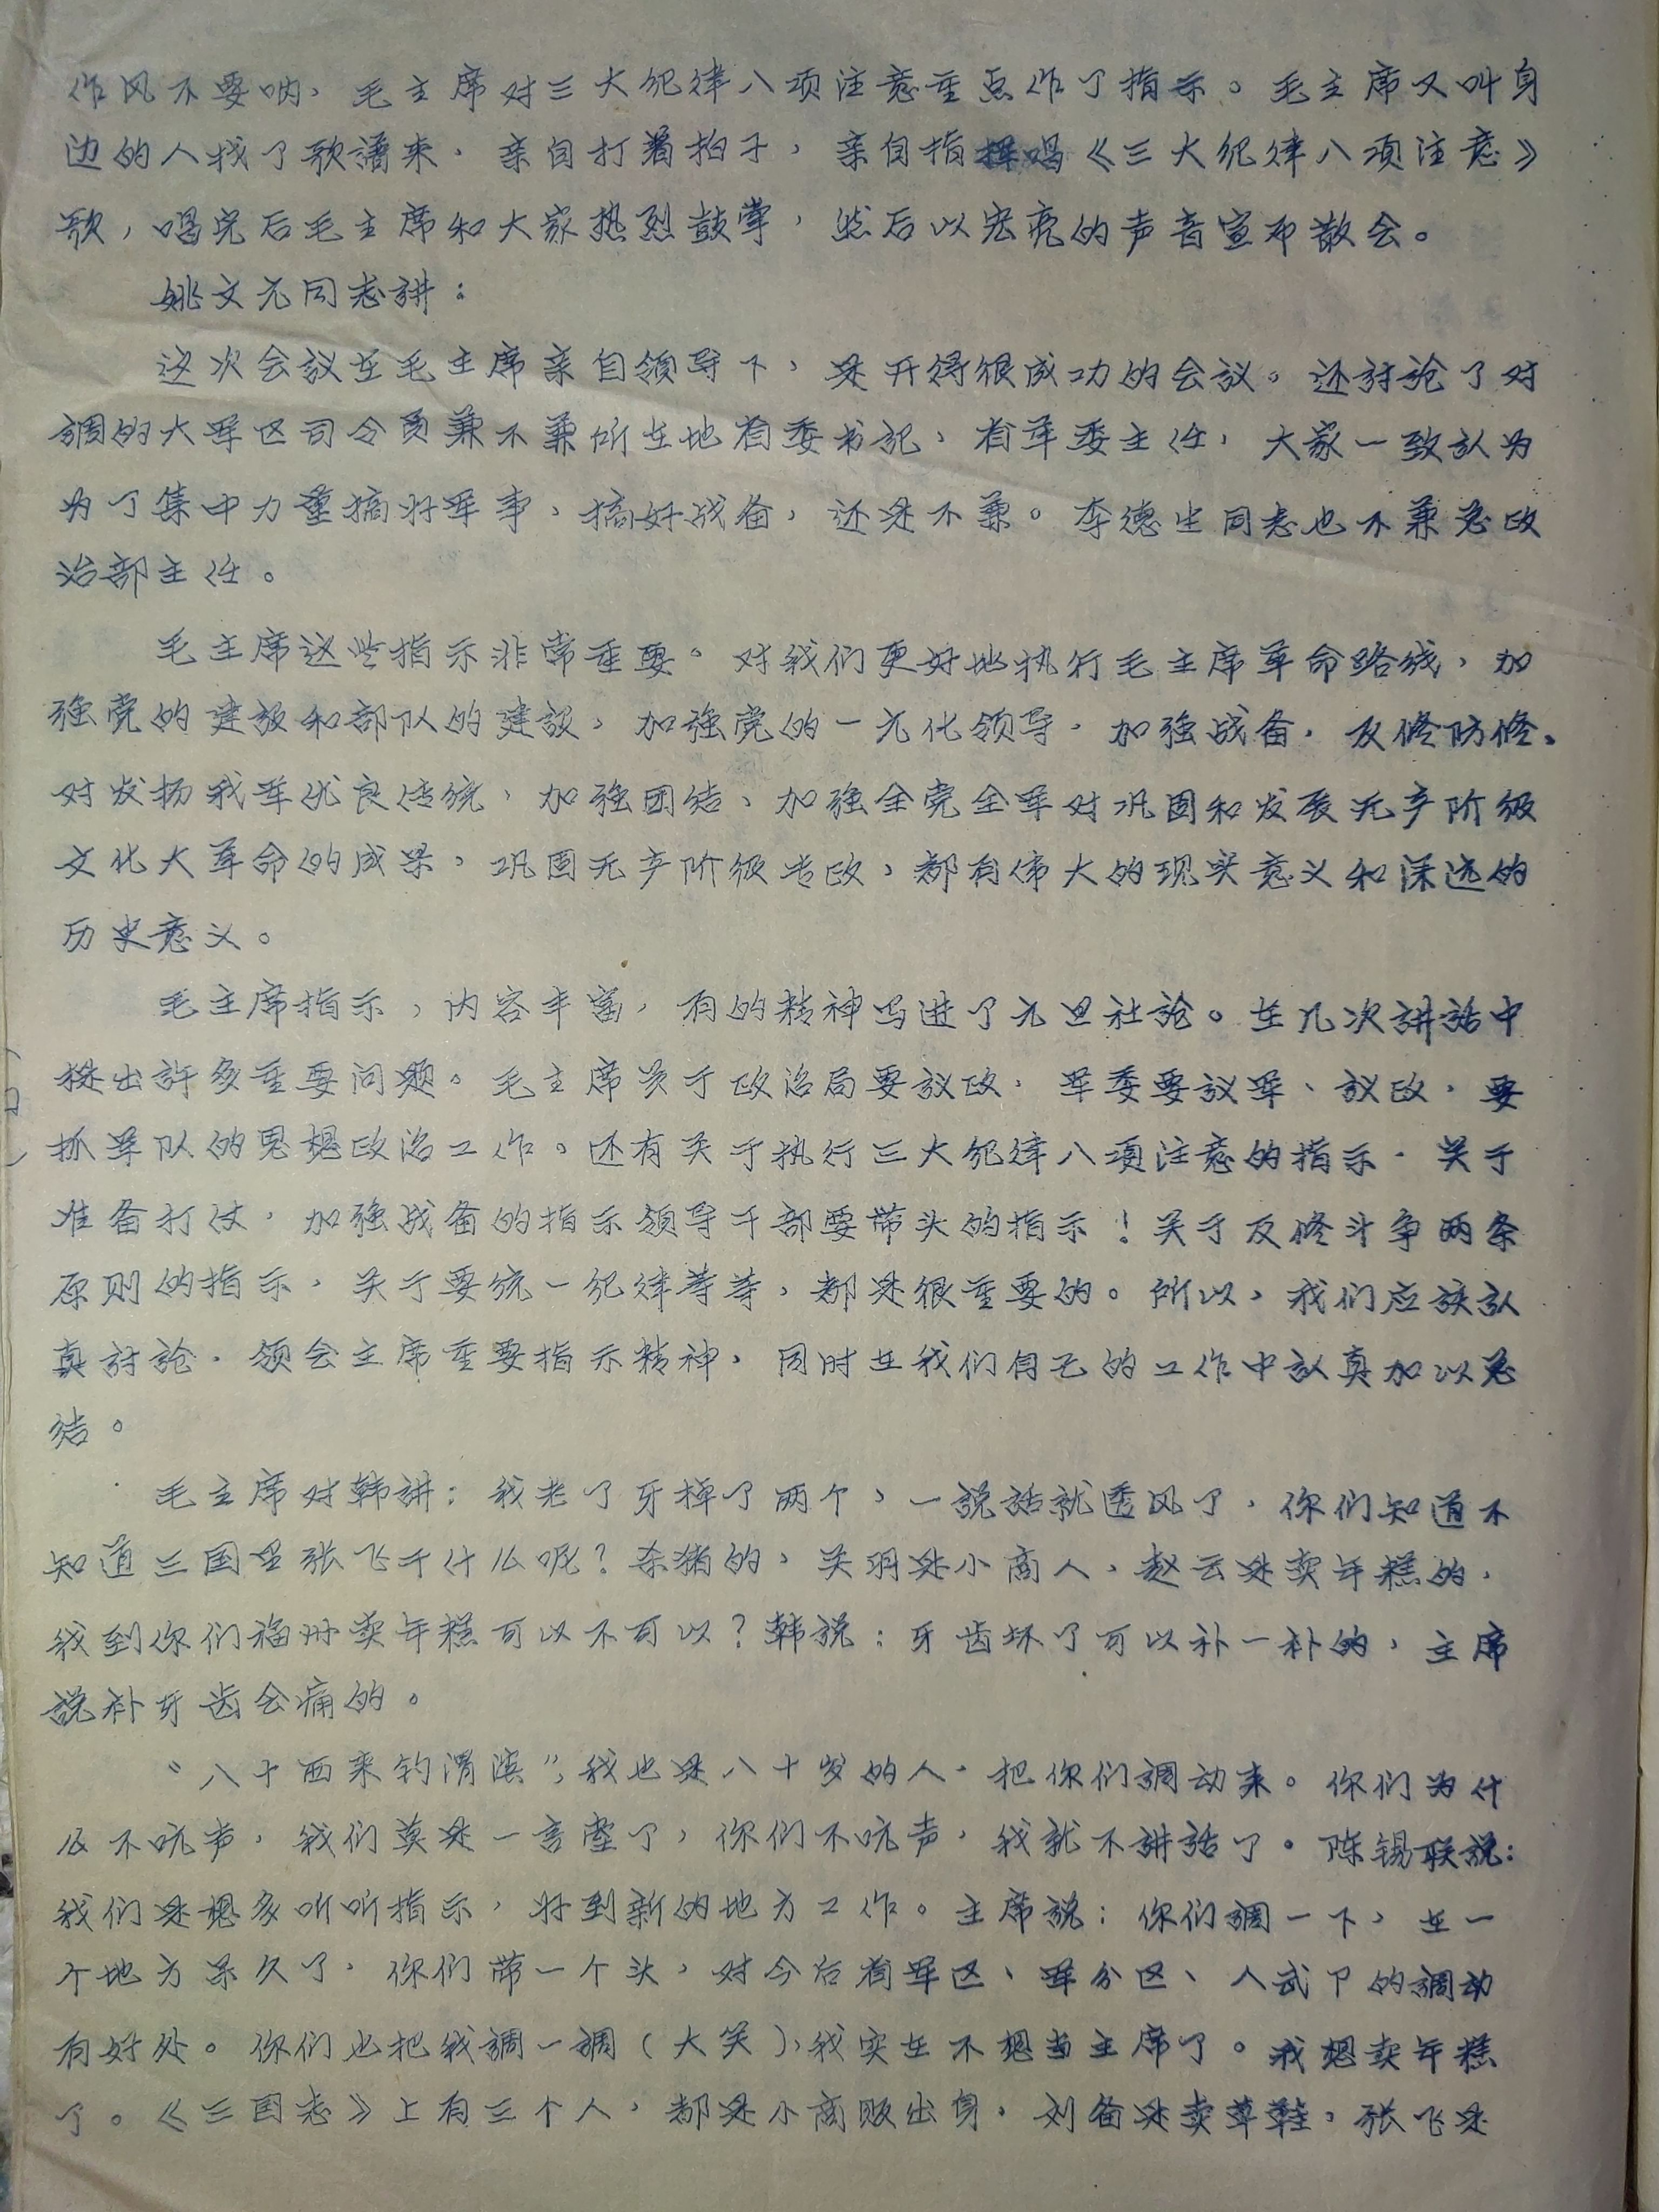 作风不要呐，毛主席对三大纪律八项注意重点作了指示。毛主席又叫身
边的人找了歌譜来，亲自打着拍子，亲自指揮唱《三大纪律八项注意》
歌，唱完后毛主席和大家热烈鼓掌，然后以宏亮的声音宣布散会。
姚文元同志讲：
这次会議在毛主席亲自领导下，是开得很成功的会议。还討論了对
調的大军区司令员兼不兼所在地省委书记，省革委主任，大家一致认为
为了集中力量搞好军事，搞好战备，还是不兼。李德生同志也不兼总政
治部主任。
毛主席这些指示非常重要。对我们更好地执行毛主席革命路线，加
强党的建設和部队的建設，加强党的一元化领导，加强战备，反修防修、
对发扬我军优良传统，加强团结、加强全党全军对巩固和发展无产阶级
文化大革命的成果，巩固无产阶级专政，都有伟大的现实意义和深远的
历史意义。
毛主席指示，内容丰富，有的精神写进了元旦社論。在几次講話中
提出許多重要问题。毛主席关于政治局要议政，军委要议军、议政，要
抓军队的思想政治工作。还有关于执行三大纪律八项注意的指示，关于
准备打仗，加强战备的指示领导干部要带头的指示！关于反修斗争两条
原则的指示，关于要统一纪律等等，都是很重要的。所以，我们应该认
真討論，领会主席重要指示精神，同时在我们自己的工作中认真加以总
结。
毛主席对韩讲：我老了牙掉了两个，一說話就透风了，你们知道不
知道三国里张飞干什么呢？杀猪的，关羽是小商人，赵云是卖年糕的，
我到你们福州卖年糕可以不可以？韩說：牙齿坏了可以补一补的，主席
說补牙齿会痛的。
“八十西来钓渭滨”，我也是八十岁的人，把你们調动来。你们为什
么不吭声，我们莫是一言堂了，你们不吭声，我就不讲話了。陈锡联說：
我们是想多听听指示，好到新的地方工作。主席說：你们調一下，在一
个地方呆久了，你们带一个头，对今后省军区、军分区、人武卩的調动
有好处。你们也把我調一調（大笑），我实在不想当主席了。我想卖年糕
了。《三国志》上有三个人，都是小商贩出身，刘备是卖草鞋，张飞是